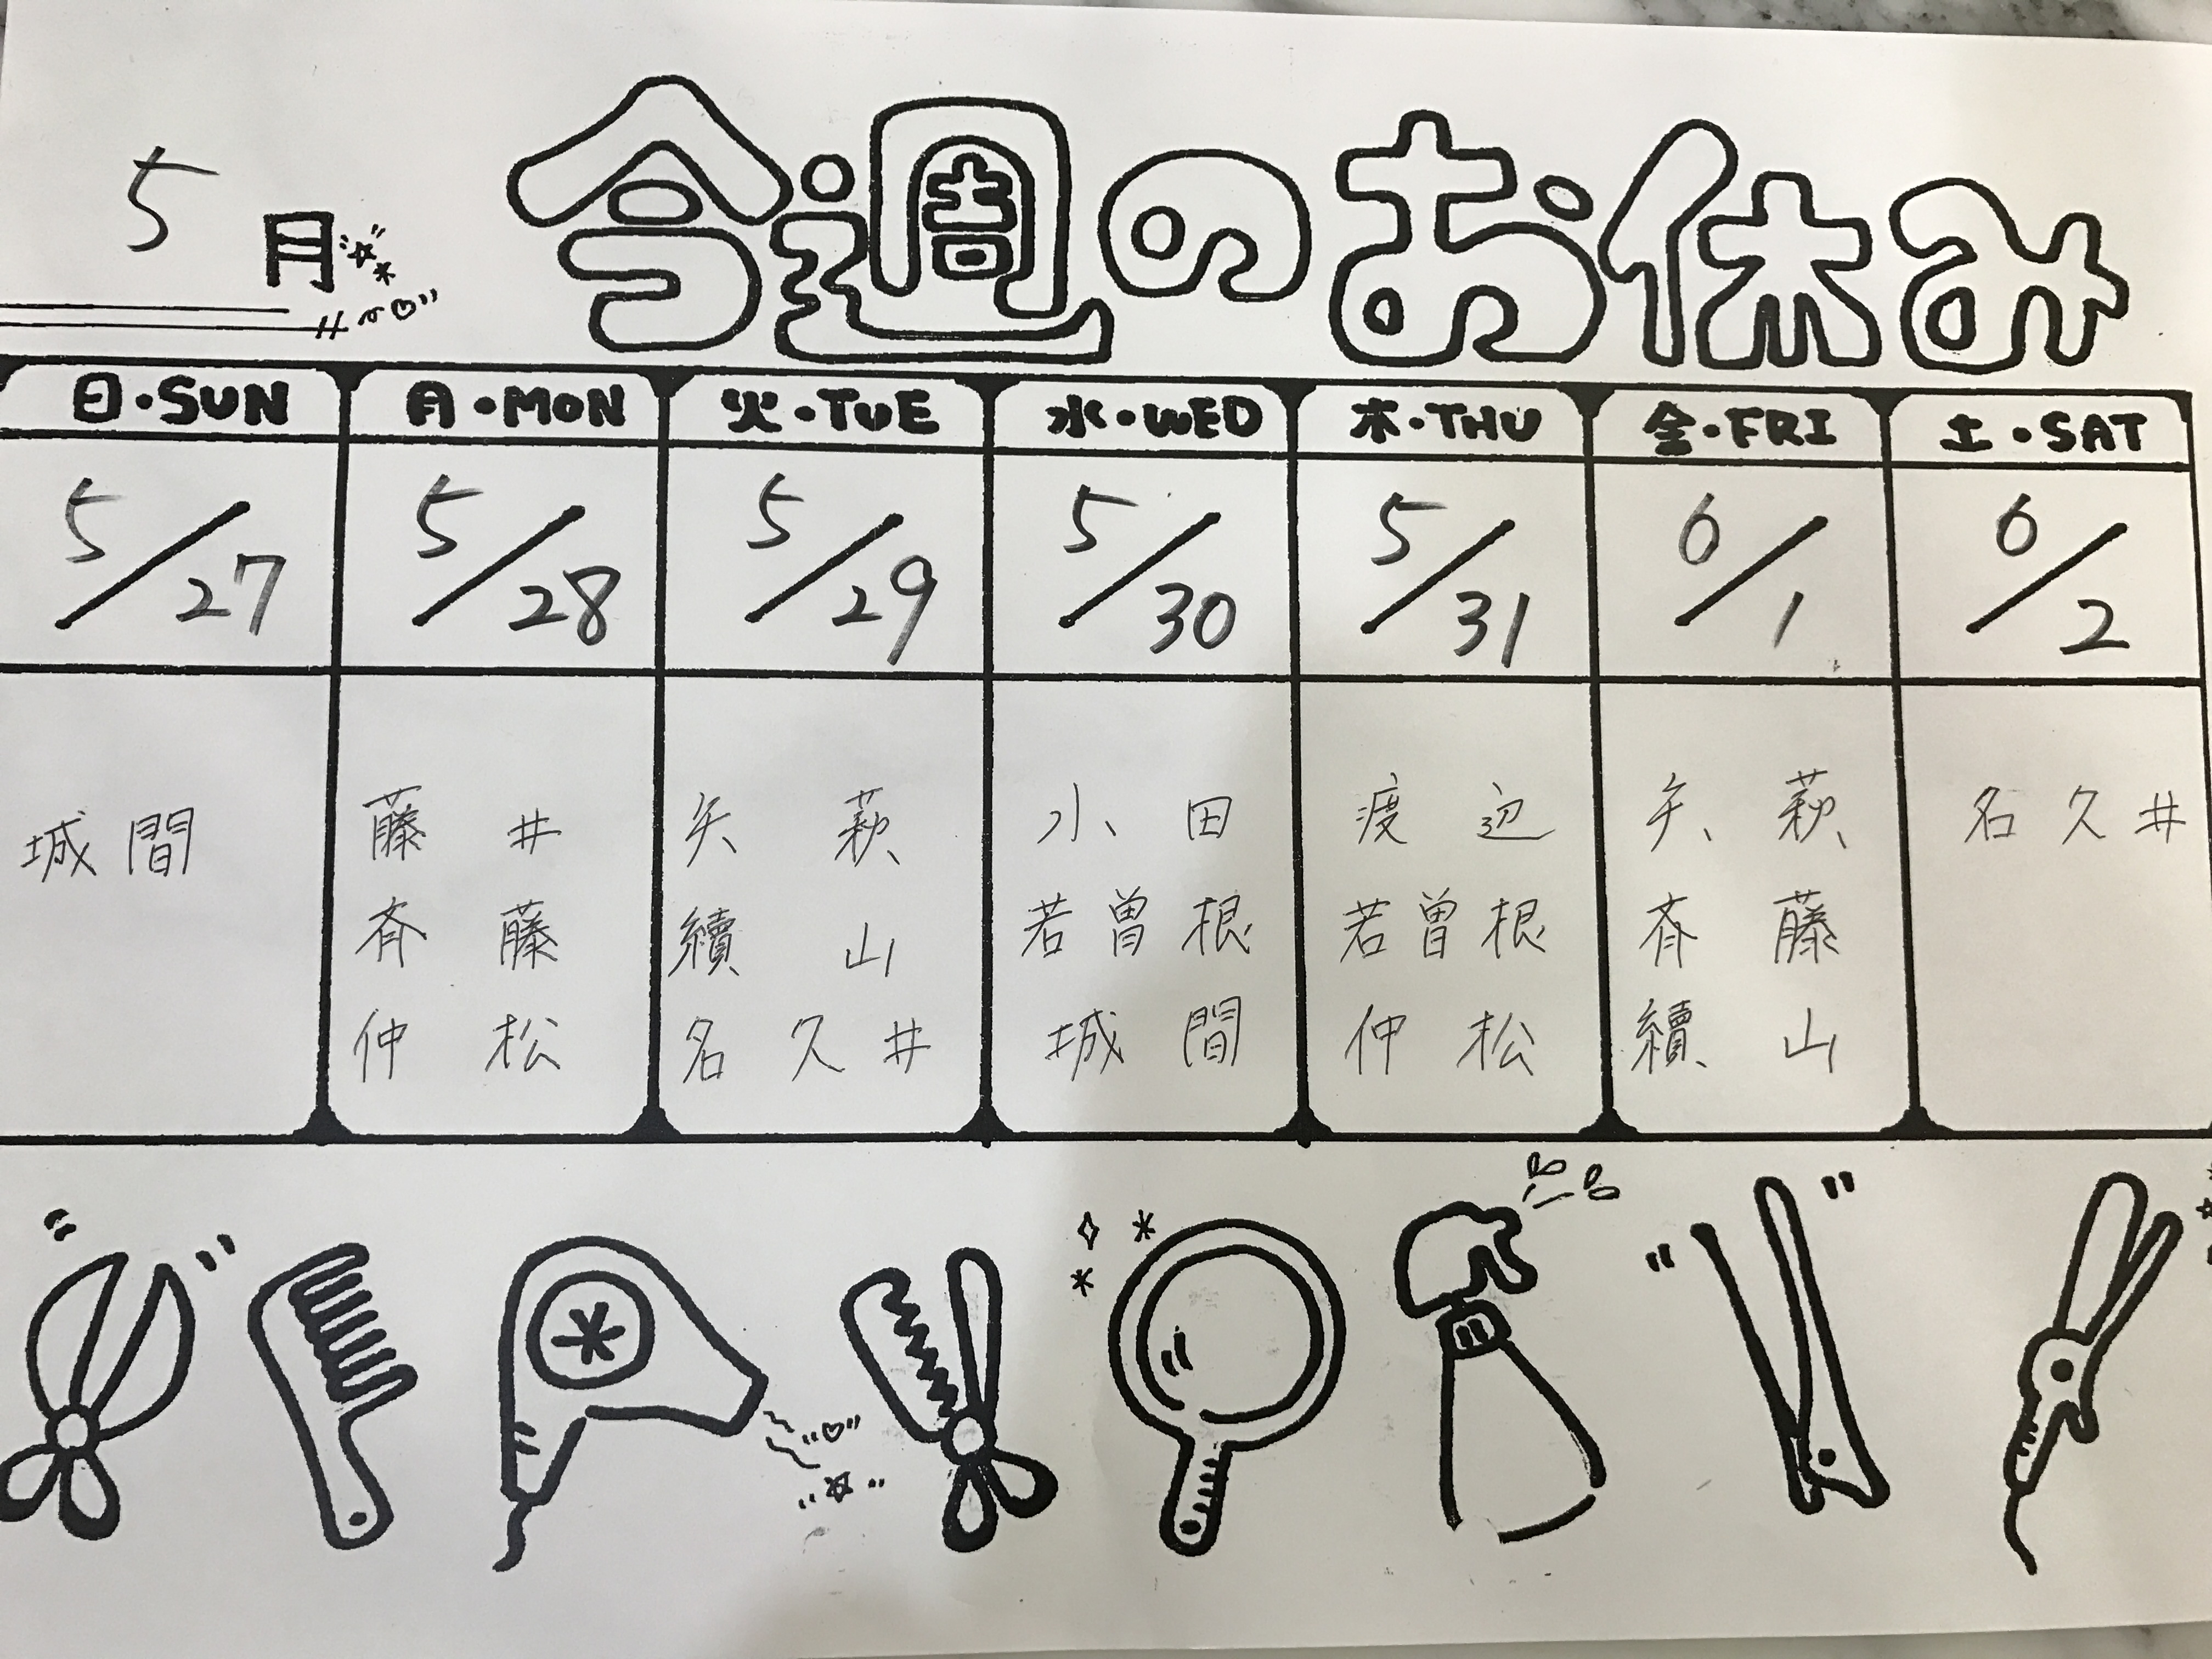 5月
今週のお休み
日・SUN 月・MON 火・TUE 水・WED 木・THU 金・FRI 土・SAT
5/27 5/28 5/29 5/30 5/31 6/1 6/2
城間
藤井
斉藤
仲松
矢萩
續山
名久井
小田
若曽根
城間
渡辺
若曽根
仲松
矢萩
斉藤
續山
名久井